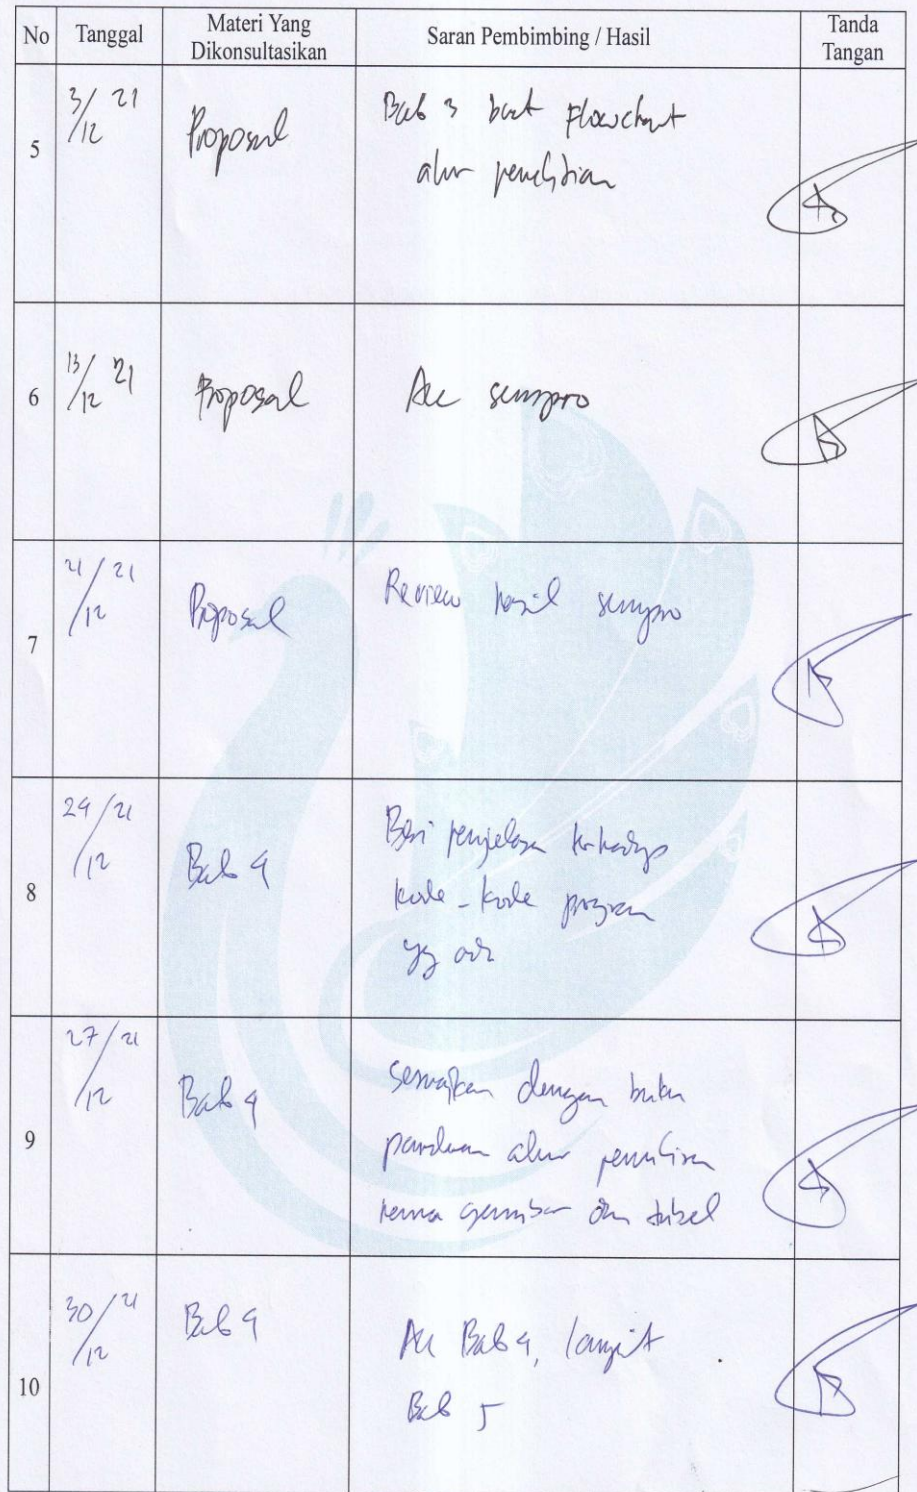 No Tanggal Materi Yang Dikonsultasikan Saran Pembimbing / Hasil Tanda Tangan
5 3/12 21 Proposal Bab 3 buat Flowchart
alur penelitian
6 13/12 21 Proposal Acc sempro
7 21/12 21 Proposal Review hasil sempro
8 24/12 21 Bab 4 Beri penjelasan terhadap
kode - kode program
yg ada
9 27/12 21 Bab 4 sesuaikan dengan buku
panduan alur penulisan
gambar dan tabel
10 30/12 21 Bab 4 Acc Bab 4, lanjut
Bab 5